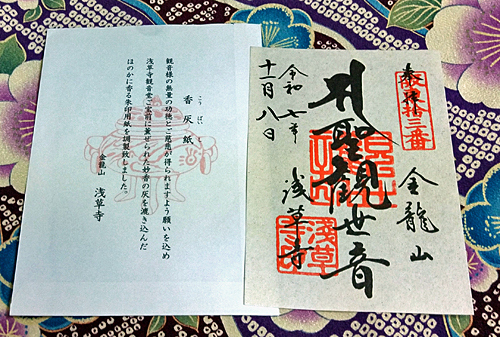 香灰紙
こうばいし
観音様の無量の功徳とご慈悲が得られますよう願いを込め
浅草寺観音堂ご宝前に薫ぜられた妙香の灰を漉き込んだ
ほのかに香る朱印用紙を調製致しました。
金龍山 浅草寺
奉拝
坂東拾三番
金龍山
聖観世音
浅草寺
令和七年
十一月八日
浅草寺